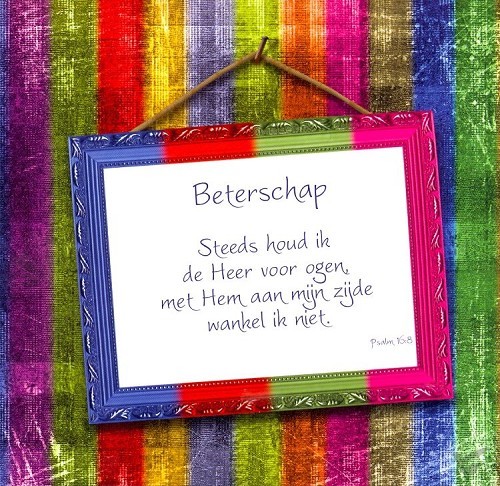 Beterschap
Steeds houd ik
de Heer voor ogen,
met Hem aan mijn zijde
wankel ik niet.
Psalm 16:8